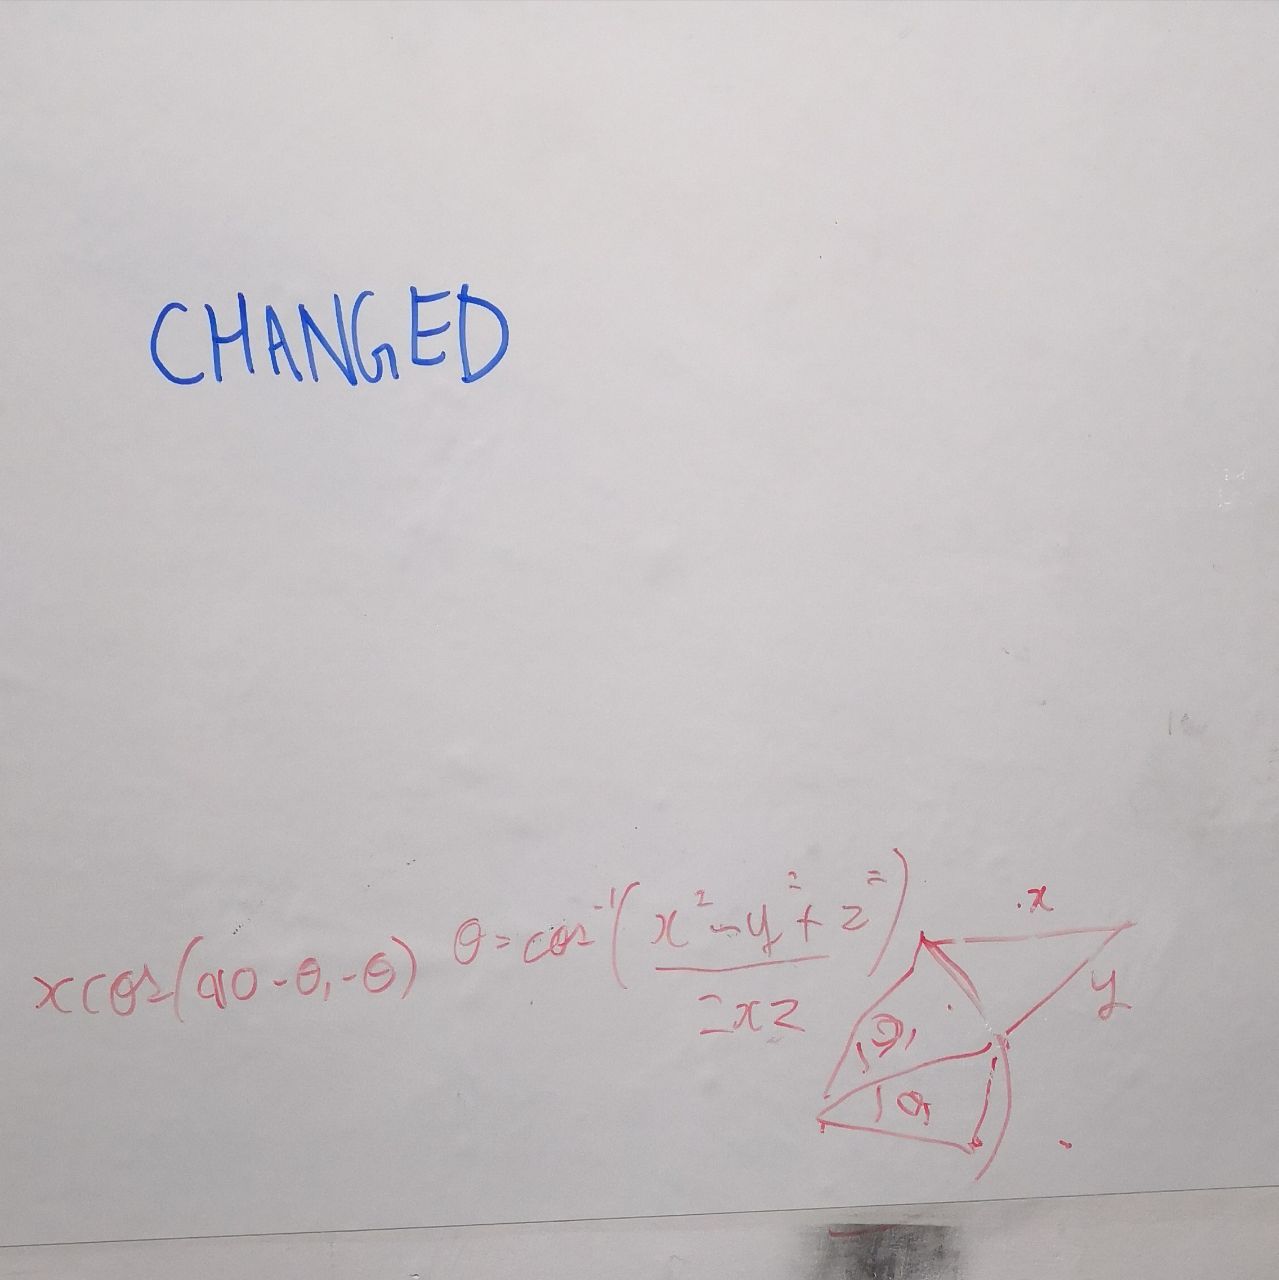 CHANGED
x cos(90-θ₁-θ) θ = cos⁻¹(x²-y²+z² / 2xz)
x
y
θ₁
θ